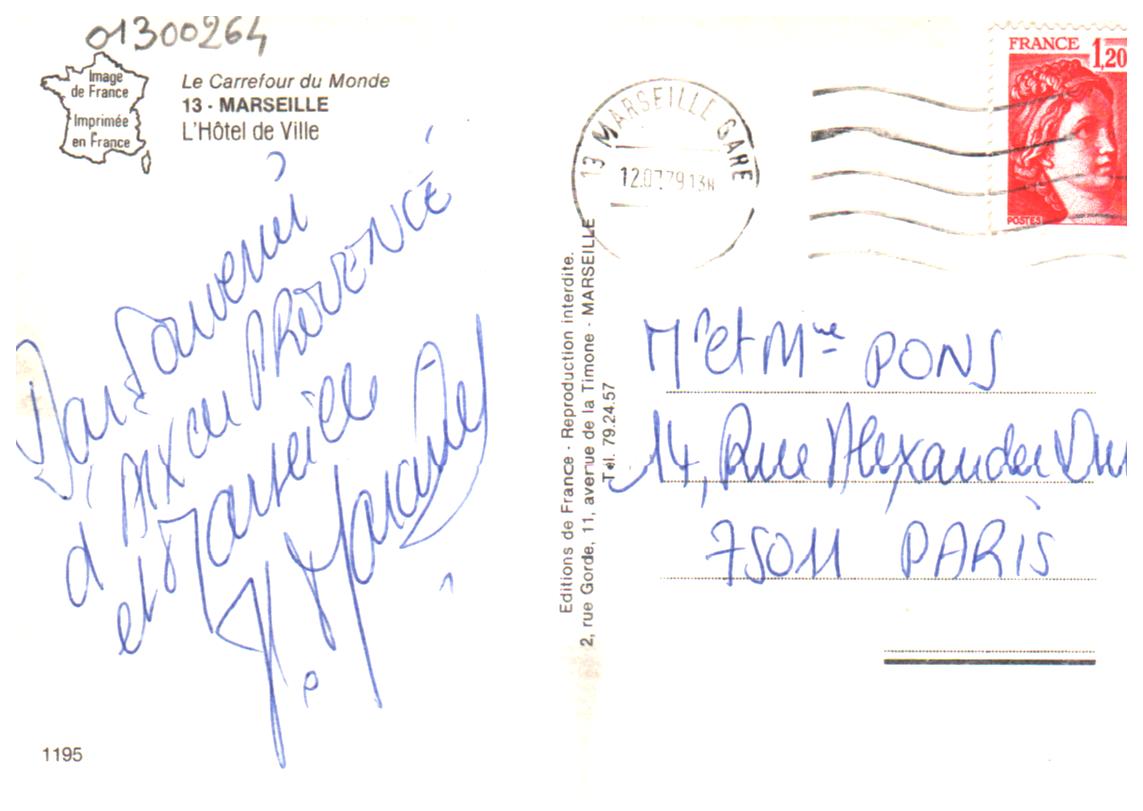 01300264
Image
de France
Imprimée
en France
Le Carrefour du Monde
13 - MARSEILLE
L'Hôtel de Ville
Bon Souvenir
d'Aix en PROVENCE
et Marseille
1195
Editions de France - Reproduction interdite.
2, rue Gorde, 11, avenue de la Timone - MARSEILLE
Tél. 79.24.57
13 MARSEILLE GARE
12.07.79 13H
FRANCE 1,20
POSTES
Mr et Mme PONS
14, Rue Alexandre Du
75011 PARIS